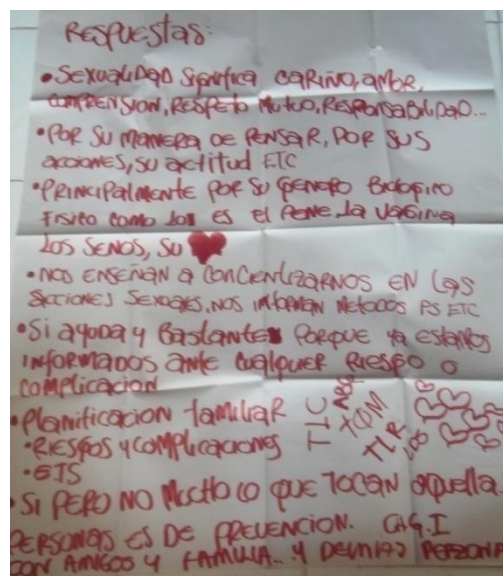 RESPUESTAS:
• SEXUALIDAD SIGNIFICA CARIÑO, AMOR,
COMPRENSION, RESPETO MUTUO, RESPONSABILIDAD...
• POR SU MANERA DE PENSAR, POR SUS
ACCIONES, SU ACTITUD ETC
• PRINCIPALMENTE POR SU GENERO BIOLOGICO
FISICO COMO LOS ES EL PENE, LA VAGINA
LOS SENOS, SU
• NOS ENSEÑAN A CONCIENTIZARNOS EN LAS
ACCIONES SEXUALES, NOS INFORMAN METODOS PS ETC
• SI AYUDA Y BASTANTE PORQUE YA ESTAMOS
INFORMADOS ANTE CUALQUIER RIESGO O
COMPLICACION
• PLANIFICACION FAMILIAR
• RIESGOS Y COMPLICACIONES
• ETS
TLC
TQM
TLR
LOS
• SI PERO NO MUCHO LO QUE TOCAN AQUELLA
PERSONAS ES DE PREVENCION.
CON AMIGOS Y FAMILIA.. Y DEMAS PERSONA